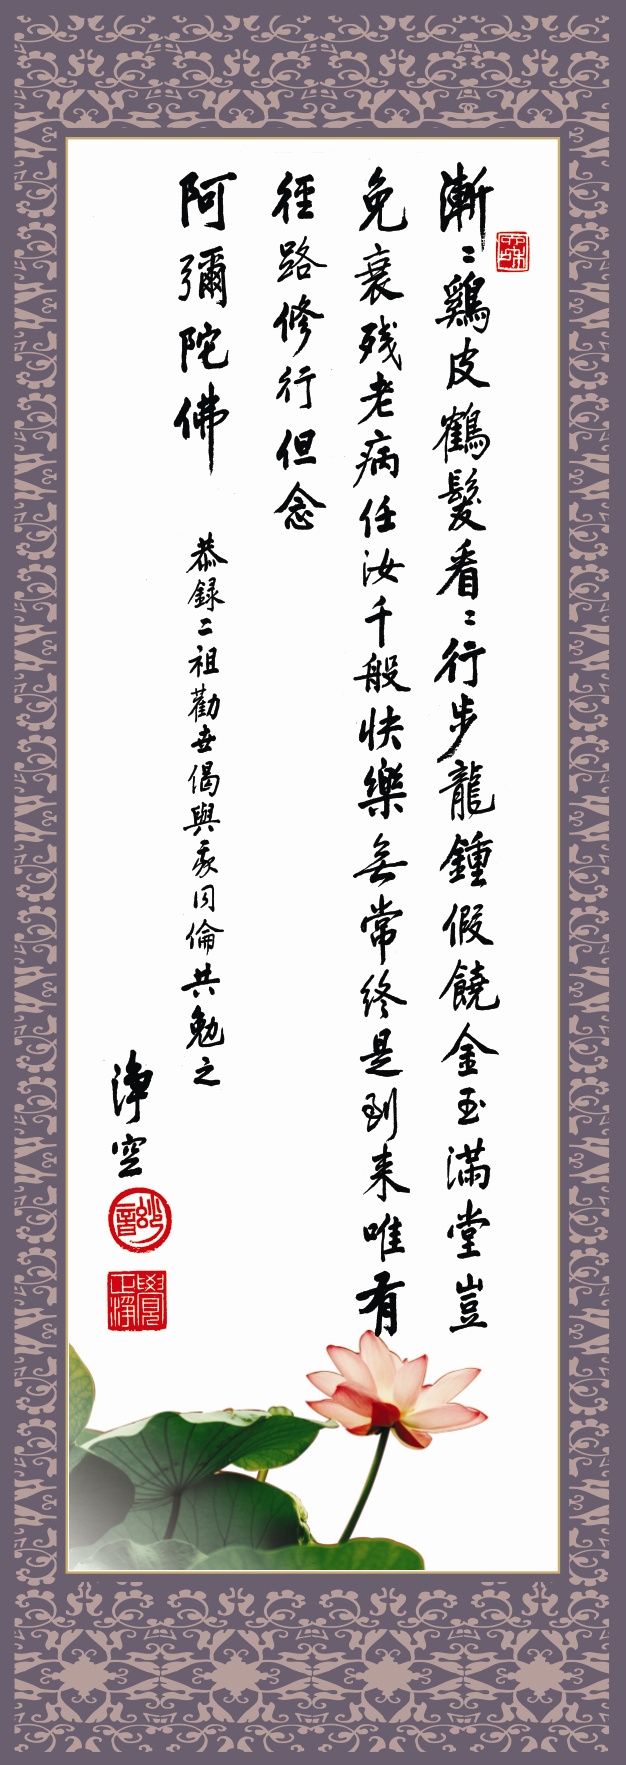 漸〻鷄皮鶴髮看〻行步龍鍾假饒金玉滿堂豈
免衰殘老病任汝千般快樂無常終是到来唯有
徑路修行但念
阿彌陀佛
恭録二祖勸世偈與我同倫共勉之
淨空
妙音
正覺淨